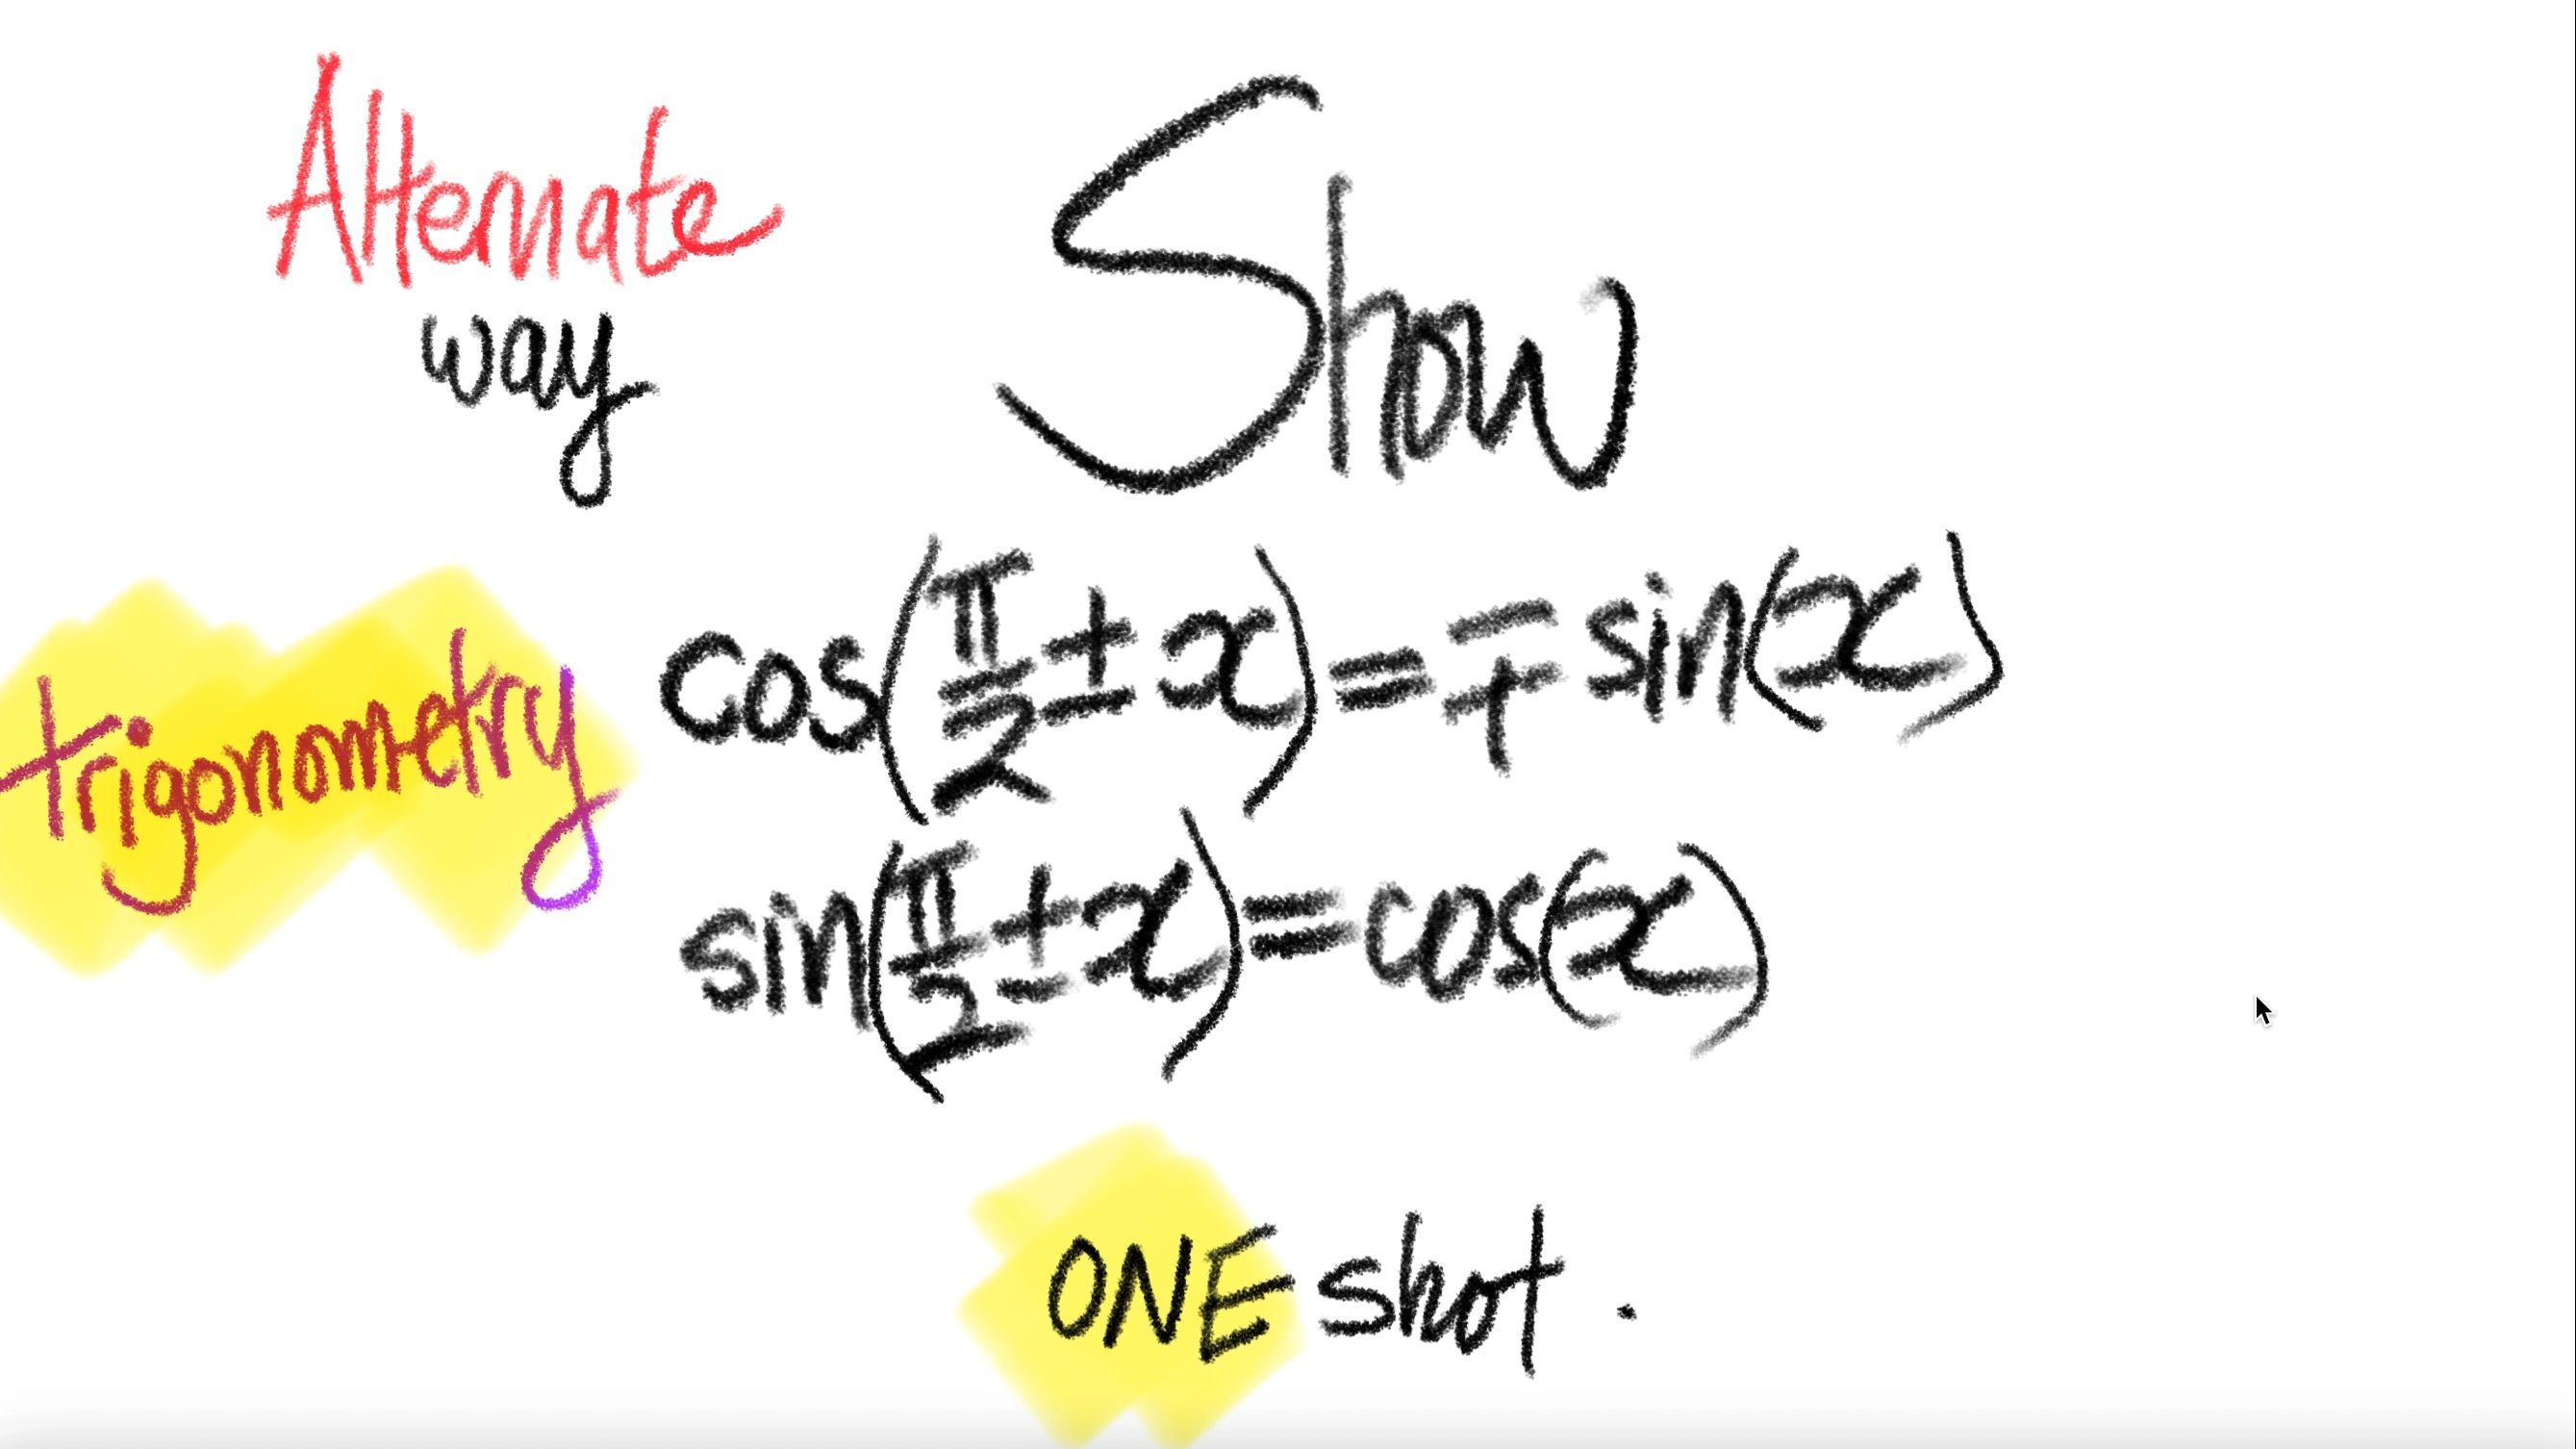 Alternate
way
Show
trigonometry
cos(π/2 ± x) = ∓ sin(x)
sin(π/2 ± x) = cos(x)
ONE shot.